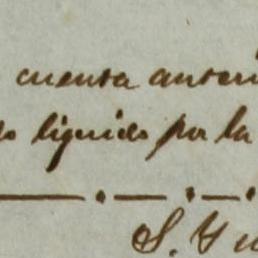 cuenta anteri
do liquido por la
S.